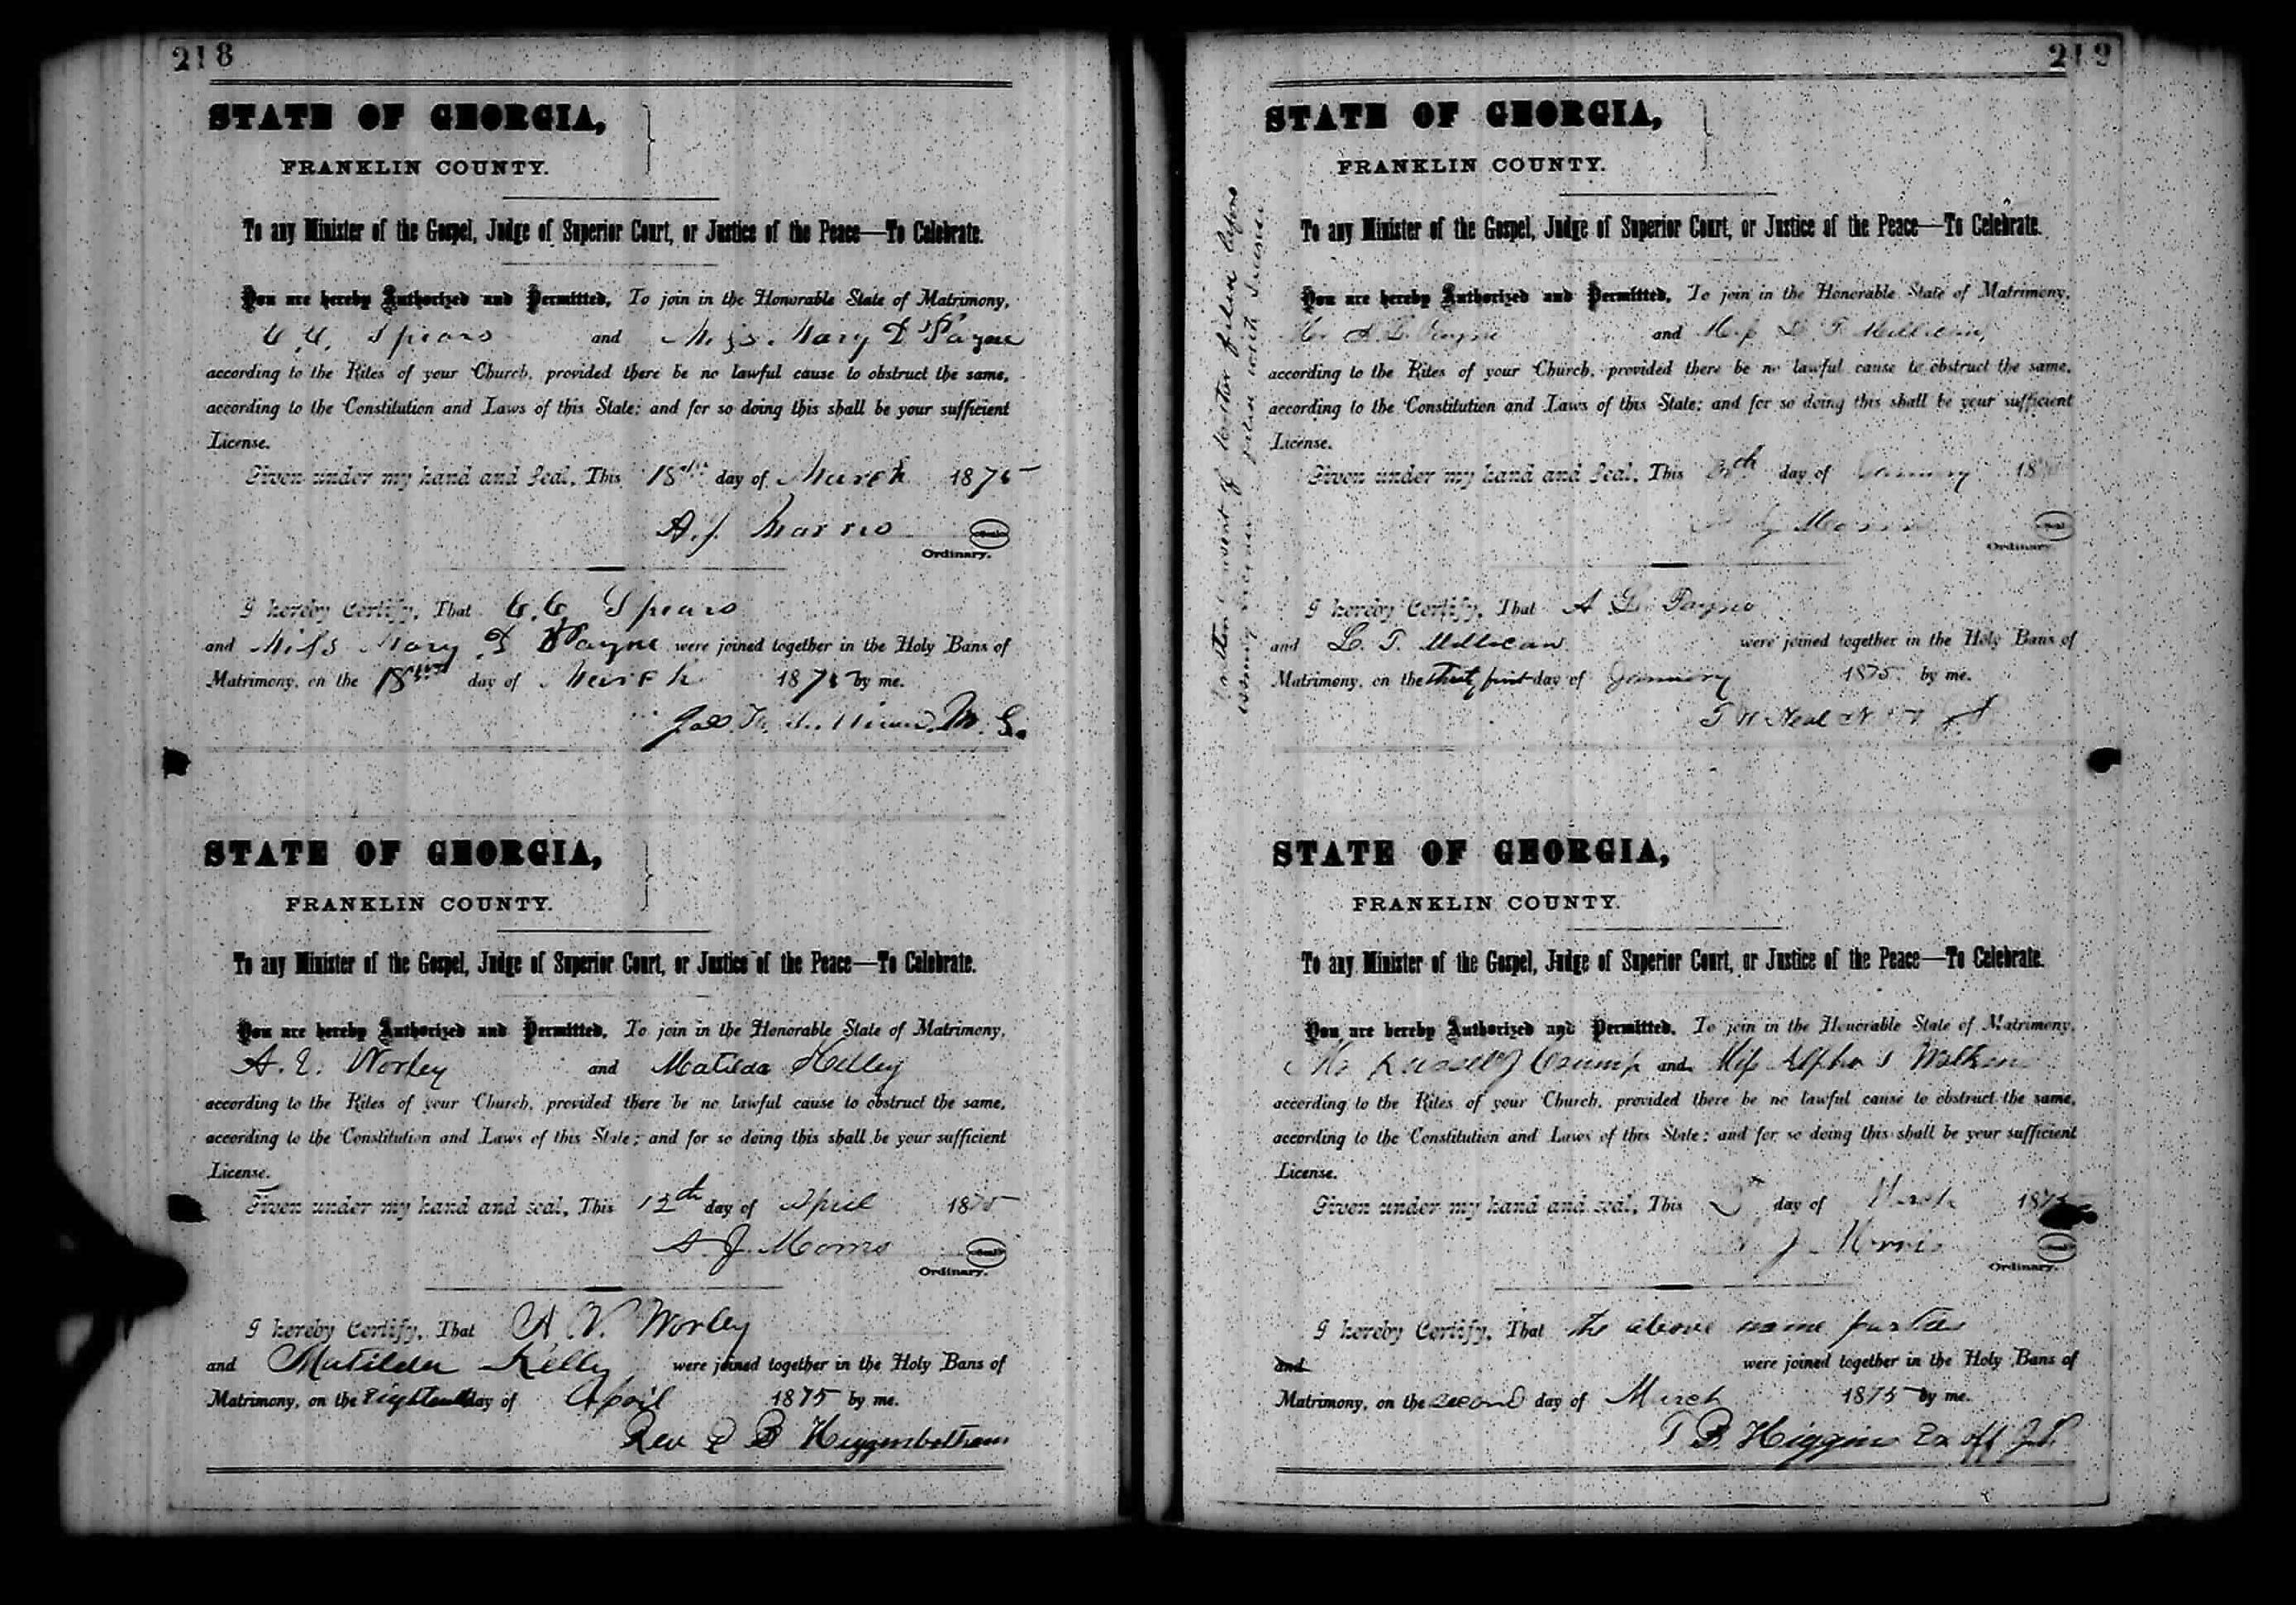 218
STATE OF GEORGIA,
FRANKLIN COUNTY.
To any Minister of the Gospel, Judge of Superior Court, or Justice of the Peace—To Celebrate.
You are hereby Authorized and Permitted, To join in the Honorable State of Matrimony,
Spears and Miss Mary Payne
according to the Rites of your Church, provided there be no lawful cause to obstruct the same,
according to the Constitution and Laws of this State; and for so doing this shall be your sufficient
License.
Given under my hand and Seal, This 18th day of March 1875
A. J. Morris
Ordinary.
I hereby Certify, That Spears
and Miss Mary Payne were joined together in the Holy Bans of
Matrimony, on the day of March 187 by me.
M. G.
STATE OF GEORGIA,
FRANKLIN COUNTY.
To any Minister of the Gospel, Judge of Superior Court, or Justice of the Peace—To Celebrate.
You are hereby Authorized and Permitted, To join in the Honorable State of Matrimony,
A. V. Worley and Matilda Kelley
according to the Rites of your Church, provided there be no lawful cause to obstruct the same,
according to the Constitution and Laws of this State; and for so doing this shall be your sufficient
License.
Given under my hand and seal, This 12th day of April 1875
A. J. Morris
Ordinary.
I hereby Certify, That A V. Worley
and Matilda Kelly were joined together in the Holy Bans of
Matrimony, on the day of April 1875 by me.
Rev B Higgenbotham
219
STATE OF GEORGIA,
FRANKLIN COUNTY.
To any Minister of the Gospel, Judge of Superior Court, or Justice of the Peace—To Celebrate.
You are hereby Authorized and Permitted, To join in the Honorable State of Matrimony,
Mr A. L. Payne and Miss L. T. Millican,
according to the Rites of your Church, provided there be no lawful cause to obstruct the same,
according to the Constitution and Laws of this State; and for so doing this shall be your sufficient
License.
Given under my hand and Seal, This day of January 18
J Morris
Ordinary.
I hereby Certify, That A L. Payne
and L. T. Millican were joined together in the Holy Bans of
Matrimony, on the thirty first day of January 1875 by me.
T W Neal
STATE OF GEORGIA,
FRANKLIN COUNTY.
To any Minister of the Gospel, Judge of Superior Court, or Justice of the Peace—To Celebrate.
You are hereby Authorized and Permitted, To join in the Honorable State of Matrimony,
Mr Russell J Crump and Miss
according to the Rites of your Church, provided there be no lawful cause to obstruct the same,
according to the Constitution and Laws of this State; and for so doing this shall be your sufficient
License.
Given under my hand and seal, This day of March 187
J Morris
Ordinary.
I hereby Certify, That the above name parties
and were joined together in the Holy Bans of
Matrimony, on the second day of March 1875 by me.
T B. Higgins Ex off J.P.